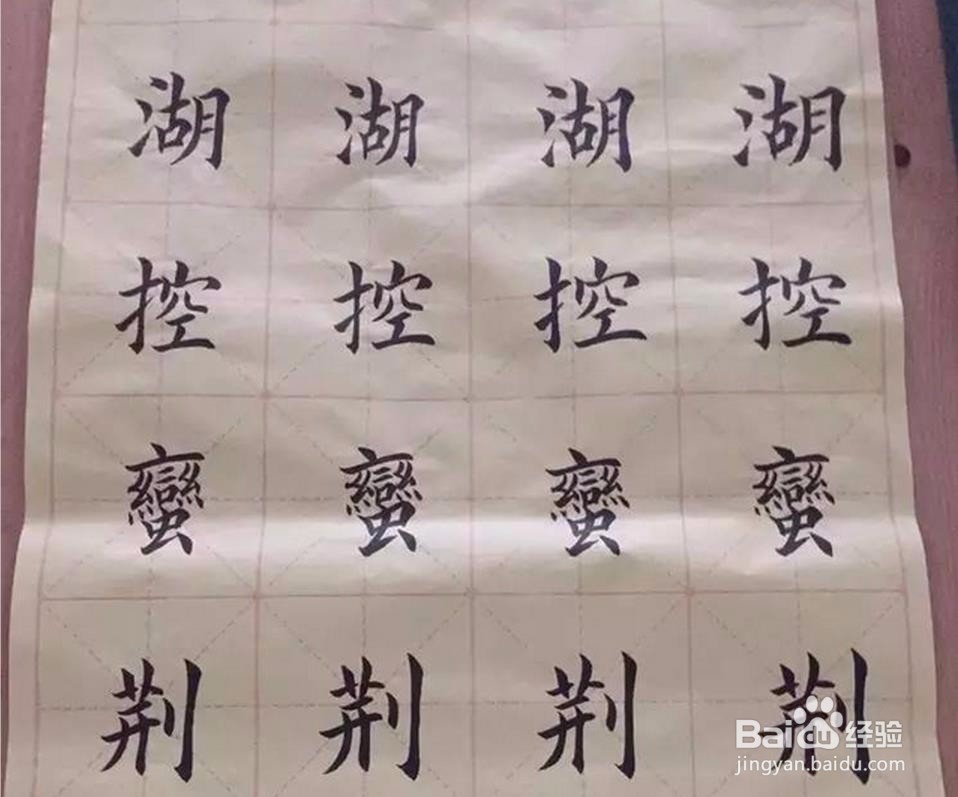 湖湖湖湖
控控控控
蠻蠻蠻蠻
荆荆荆荆
Baidu经验
jingyan.baidu.com